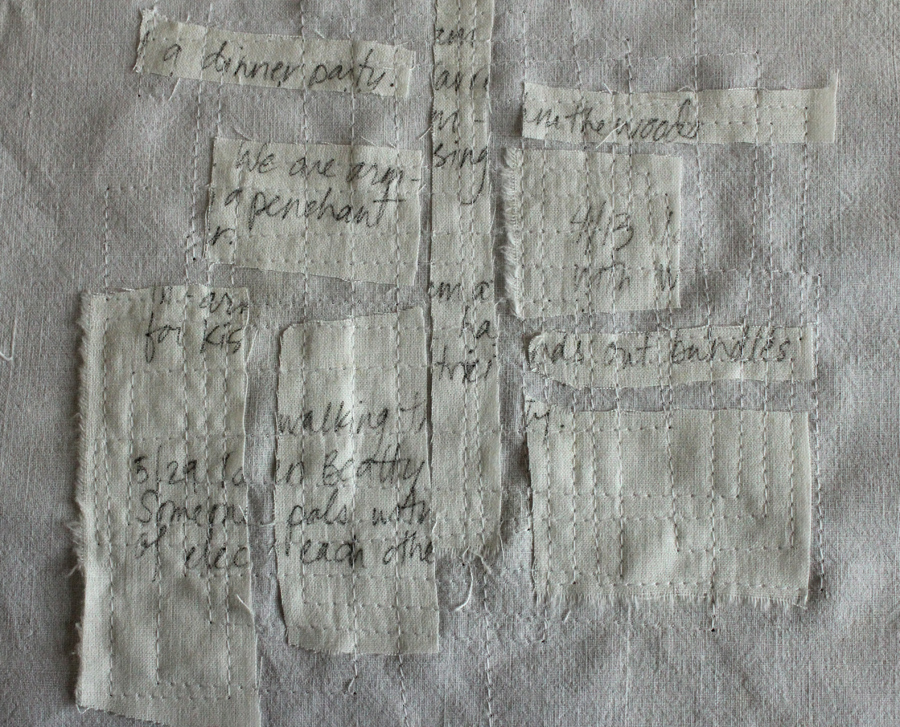 a dinner party.
am
in the woods
sing
We are arm-
a penchant
r.
4/13
with w
em a
ha
trici
for kis
nds out bundles.
ty.
walking th
5/29 Ia
n Beatty
Someon
pals with
of elec
each othe